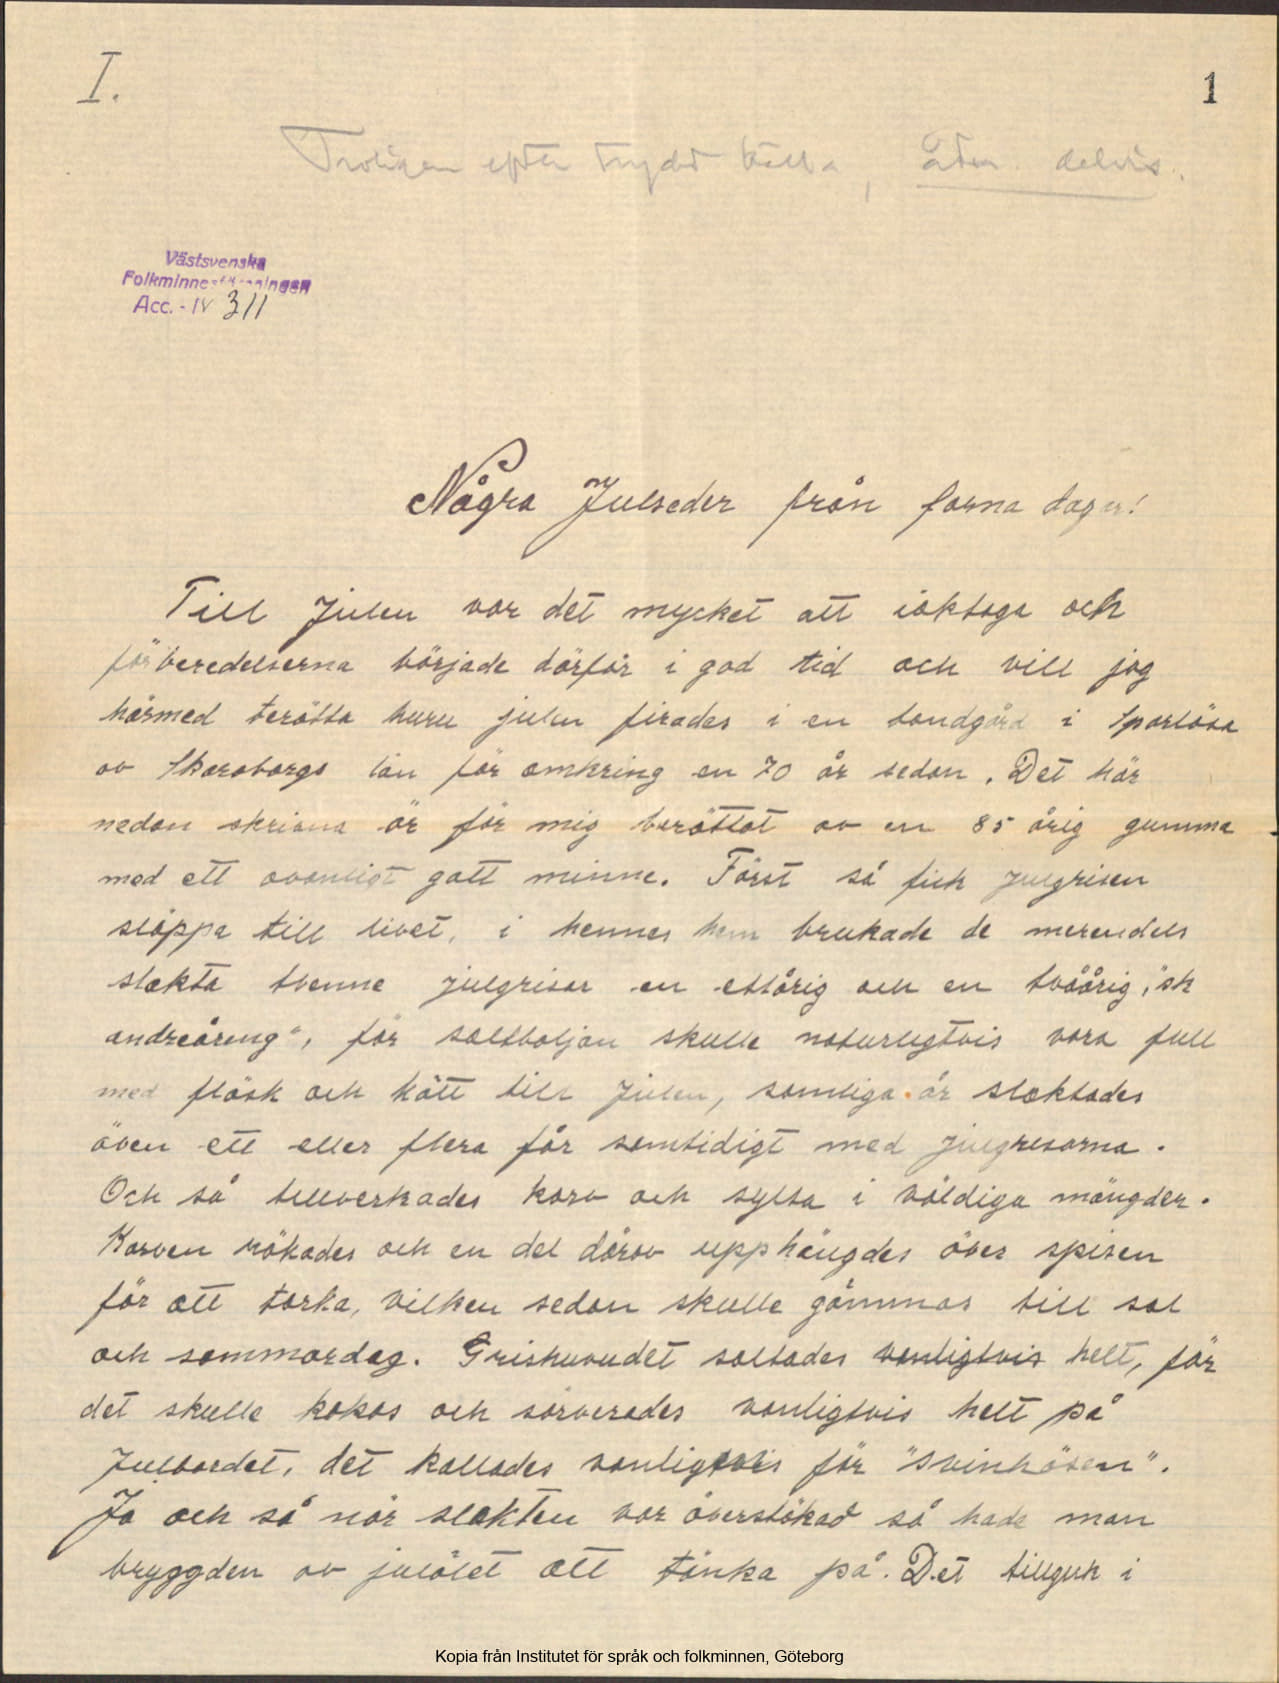 I.
1
Troligen efter tryckt källa, åtm. delvis.
Västsvenska
Folkminnesföreningen
Acc. - IV 311
Några Julseder från forna dagar!
Till Julen var det mycket att iakttaga och
förberedelserna började därför i god tid och vill jag
härmed berätta huru julen firades i en bondgård i Sparlösa
av Skaraborgs län för omkring en 70 år sedan. Det här
nedan skrivna är för mig berättat av en 85 årig gumma
med ett ovanligt gott minne. Först så fick julgrisen
släppa till livet, i hennes hem brukade de merendels
slakta tvenne julgrisar en ettårig och en tvåårig,
andreåring", för saltbaljan skulle naturligtvis vara full
med fläsk och kött till Julen, somliga år slaktades
även ett eller flera får samtidigt med julgrisarna.
Och så tillverkades korv och sylta i väldiga mängder.
Korven rökades och en del därav upphängdes över spisen
för att torka, vilken sedan skulle gömmas till sol
och sommardag. Grishuvudet saltades vanligtvis helt, för
det skulle kokas och serverades vanligtvis helt på
Julbordet, det kallades vanligtvis för "svinhösen".
Ja och så när slakten var överstökad så hade man
bryggden av julölet att tänka på. Det tillgick i
Kopia från Institutet för språk och folkminnen, Göteborg